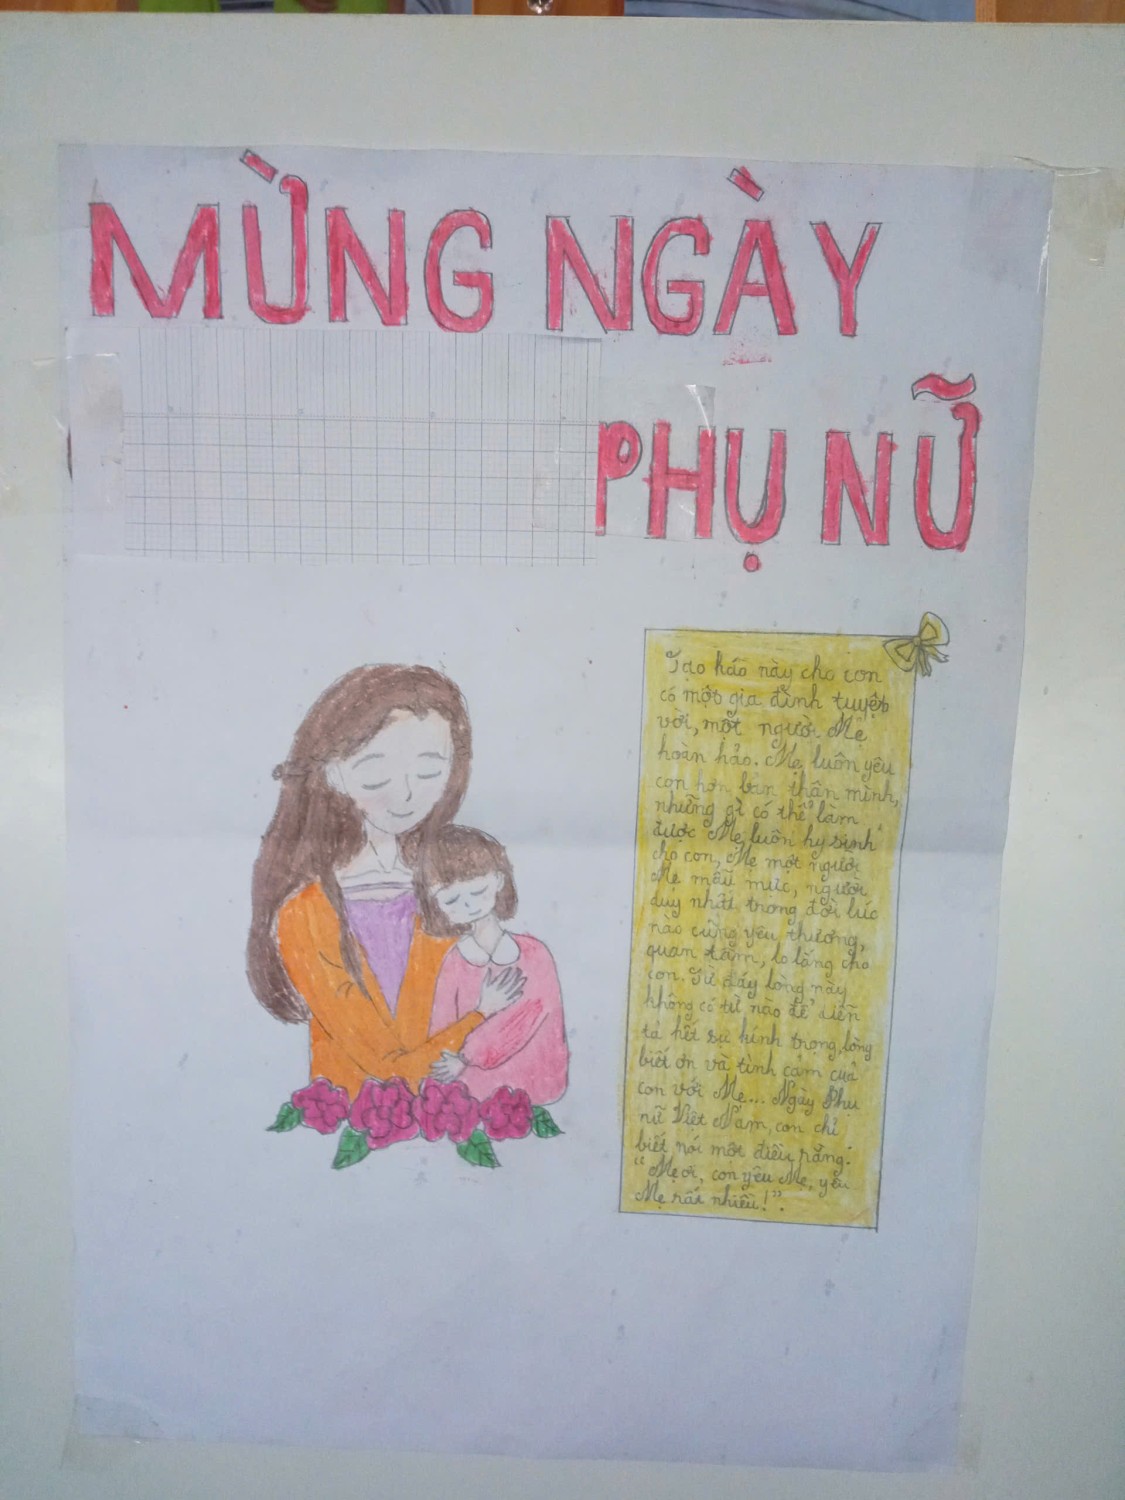 MỪNG NGÀY
PHỤ NỮ
Tạo hóa này cho con
có một gia đình tuyệt
vời, một người Mẹ
hoàn hảo. Mẹ luôn yêu
con hơn bản thân mình,
những gì có thể làm
được Mẹ luôn hy sinh
cho con, Mẹ một người
Mẹ mẫu mực, người
duy nhất trong đời lúc
nào cũng yêu thương,
quan tâm, lo lắng cho
con. Từ đáy lòng này
không có từ nào để diễn
tả hết sự kính trọng, lòng
biết ơn và tình cảm của
con với Mẹ... Ngày Phụ
nữ Việt Nam, con chỉ
biết nói một điều rằng:
"Mẹ ơi, con yêu Mẹ, yêu
Mẹ rất nhiều!".